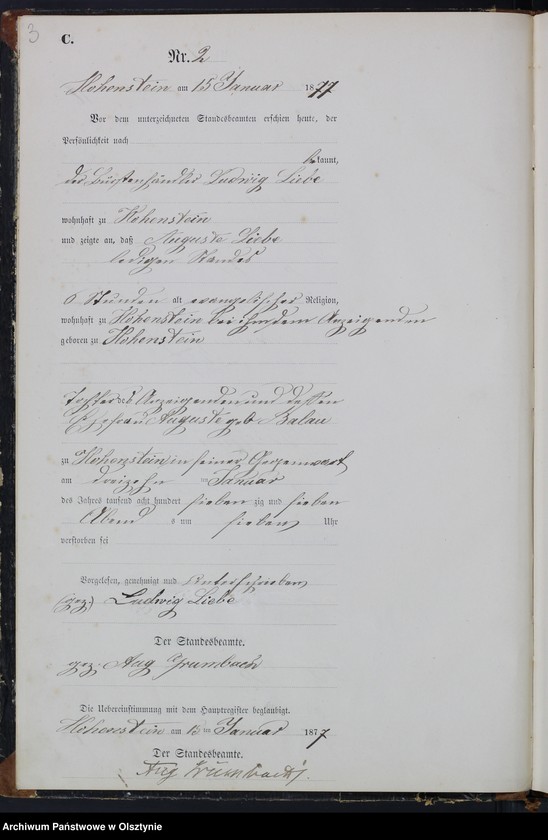 3
C.
Nr. 2
Hohenstein am 15 Januar 1877
Vor dem unterzeichneten Standesbeamten erschien heute, der
Persönlichkeit nach
bekannt,
der Bürstenhändler Ludwig Liebe
wohnhaft zu Hohenstein
und zeigte an, daß Auguste Liebe
ledigen Standes
6 Stunden alt evangelischer Religion,
wohnhaft zu Hohenstein bei ihm dem Anzeigenden
geboren zu Hohenstein
Tochter des Anzeigenden und dessen
Ehefrau Auguste geb. Balau
zu Hohenstein in seiner Gegenwart
am dreizehn ten Januar
des Jahres tausend acht hundert sieben zig und sieben
Abend s um sieben Uhr
verstorben sei
Vorgelesen, genehmigt und unterschrieben
(gez.) Ludwig Liebe
Der Standesbeamte.
gez. Aug Grumbach
Die Uebereinstimmung mit dem Hauptregister beglaubigt.
Hohenstein am 15 ten Januar 1877
Der Standesbeamte.
Aug Grumbach
Archiwum Państwowe w Olsztynie